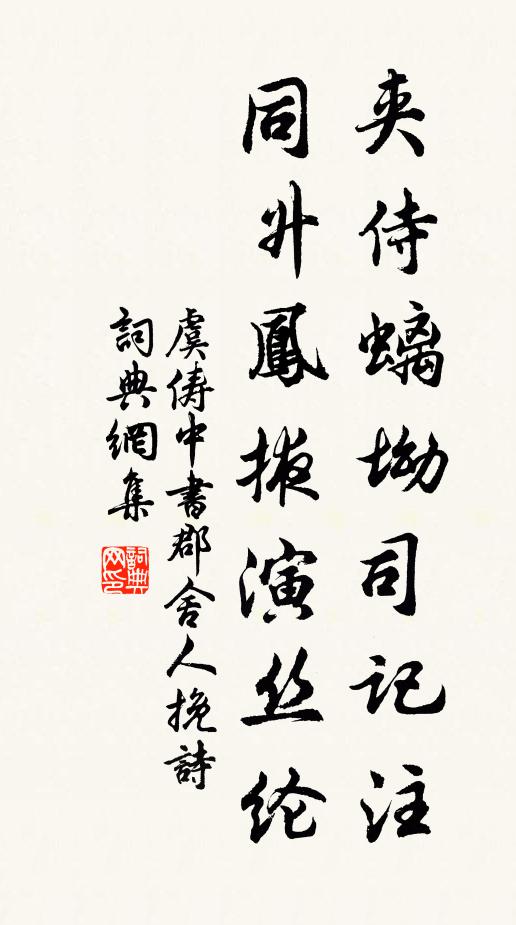 夹侍螭坳司记注
同升鳳掖演丝纶
虞儔中書郡舍人挽詩
詞典網集
詞典网印